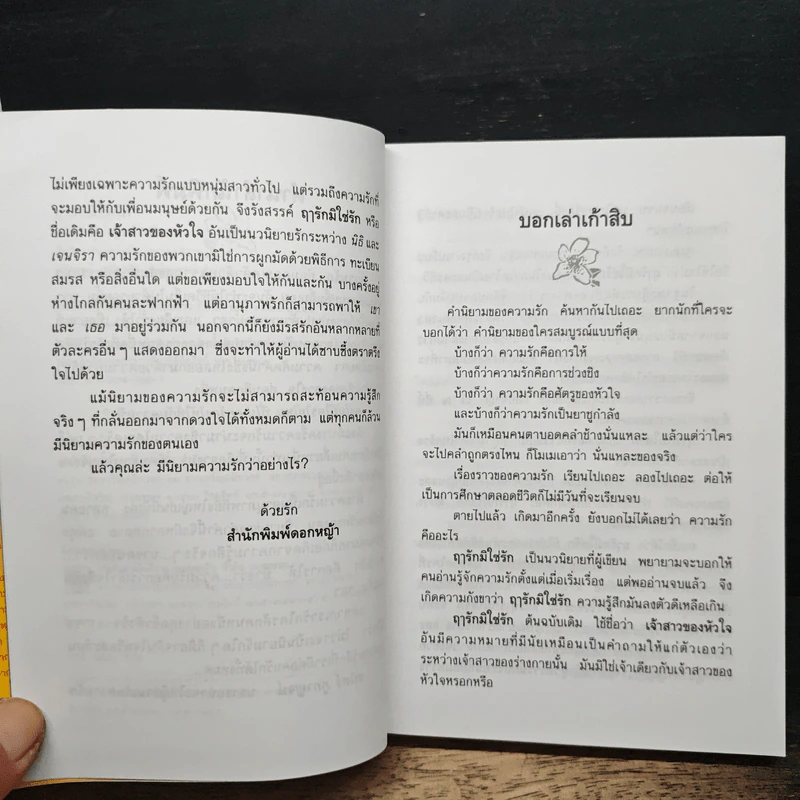 ไม่เพียงเฉพาะความรักแบบหนุ่มสาวทั่วไป แต่รวมถึงความรักที่
จะมอบให้กับเพื่อนมนุษย์ด้วยกัน จึงรังสรรค์ ฤๅรักมิใช่รัก หรือ
ชื่อเดิมคือ เจ้าสาวของหัวใจ อันเป็นนวนิยายรักระหว่าง นิธิ และ
เจนจิรา ความรักของพวกเขามิใช่การผูกมัดด้วยพิธีการ ทะเบียน
สมรส หรือสิ่งอื่นใด แต่ขอเพียงมอบใจให้กันและกัน บางครั้งอยู่
ห่างไกลกันคนละฟากฟ้า แต่อานุภาพรักก็สามารถพาให้ เขา
และ เธอ มาอยู่ร่วมกัน นอกจากนี้ก็ยังมีรสรักอันหลากหลายที่
ตัวละครอื่น ๆ แสดงออกมา ซึ่งจะทำให้ผู้อ่านได้ซาบซึ้งตราตรึง
ใจไปด้วย
แม้นิยามของความรักจะไม่สามารถสะท้อนความรู้สึก
จริง ๆ ที่กลั่นออกมาจากดวงใจได้ทั้งหมดก็ตาม แต่ทุกคนก็ล้วน
มีนิยามความรักของตนเอง
แล้วคุณล่ะ มีนิยามความรักว่าอย่างไร?
ด้วยรัก
สำนักพิมพ์ดอกหญ้า
บอกเล่าเก้าสิบ
คำนิยามของความรัก ค้นหากันไปเถอะ ยากนักที่ใครจะ
บอกได้ว่า คำนิยามของใครสมบูรณ์แบบที่สุด
บ้างก็ว่า ความรักคือการให้
บ้างก็ว่าความรักคือการช่วงชิง
บ้างก็ว่า ความรักคือศัตรูของหัวใจ
และบ้างก็ว่าความรักเป็นยาชูกำลัง
มันก็เหมือนคนตาบอดคลำช้างนั่นแหละ แล้วแต่ว่าใคร
จะไปคลำถูกตรงไหน ก็โมเมเอาว่า นั่นแหละของจริง
เรื่องราวของความรัก เรียนไปเถอะ ลองไปเถอะ ต่อให้
เป็นการศึกษาตลอดชีวิตก็ไม่มีวันที่จะเรียนจบ
ตายไปแล้ว เกิดมาอีกครั้ง ยังบอกไม่ได้เลยว่า ความรัก
คืออะไร
ฤๅรักมิใช่รัก เป็นนวนิยายที่ผู้เขียน พยายามจะบอกให้
คนอ่านรู้จักความรักตั้งแต่เมื่อเริ่มเรื่อง แต่พออ่านจบแล้ว จึง
เกิดความกังขาว่า ฤๅรักมิใช่รัก ความรู้สึกมันลงตัวดีเหลือเกิน
ฤๅรักมิใช่รัก ต้นฉบับเดิม ใช้ชื่อว่า เจ้าสาวของหัวใจ
อันมีความหมายที่มีนัยเหมือนเป็นคำถามให้แก่ตัวเองว่า
ระหว่างเจ้าสาวของร่างกายนั้น มันมิใช่เจ้าเดียวกับเจ้าสาวของ
หัวใจหรอกหรือ